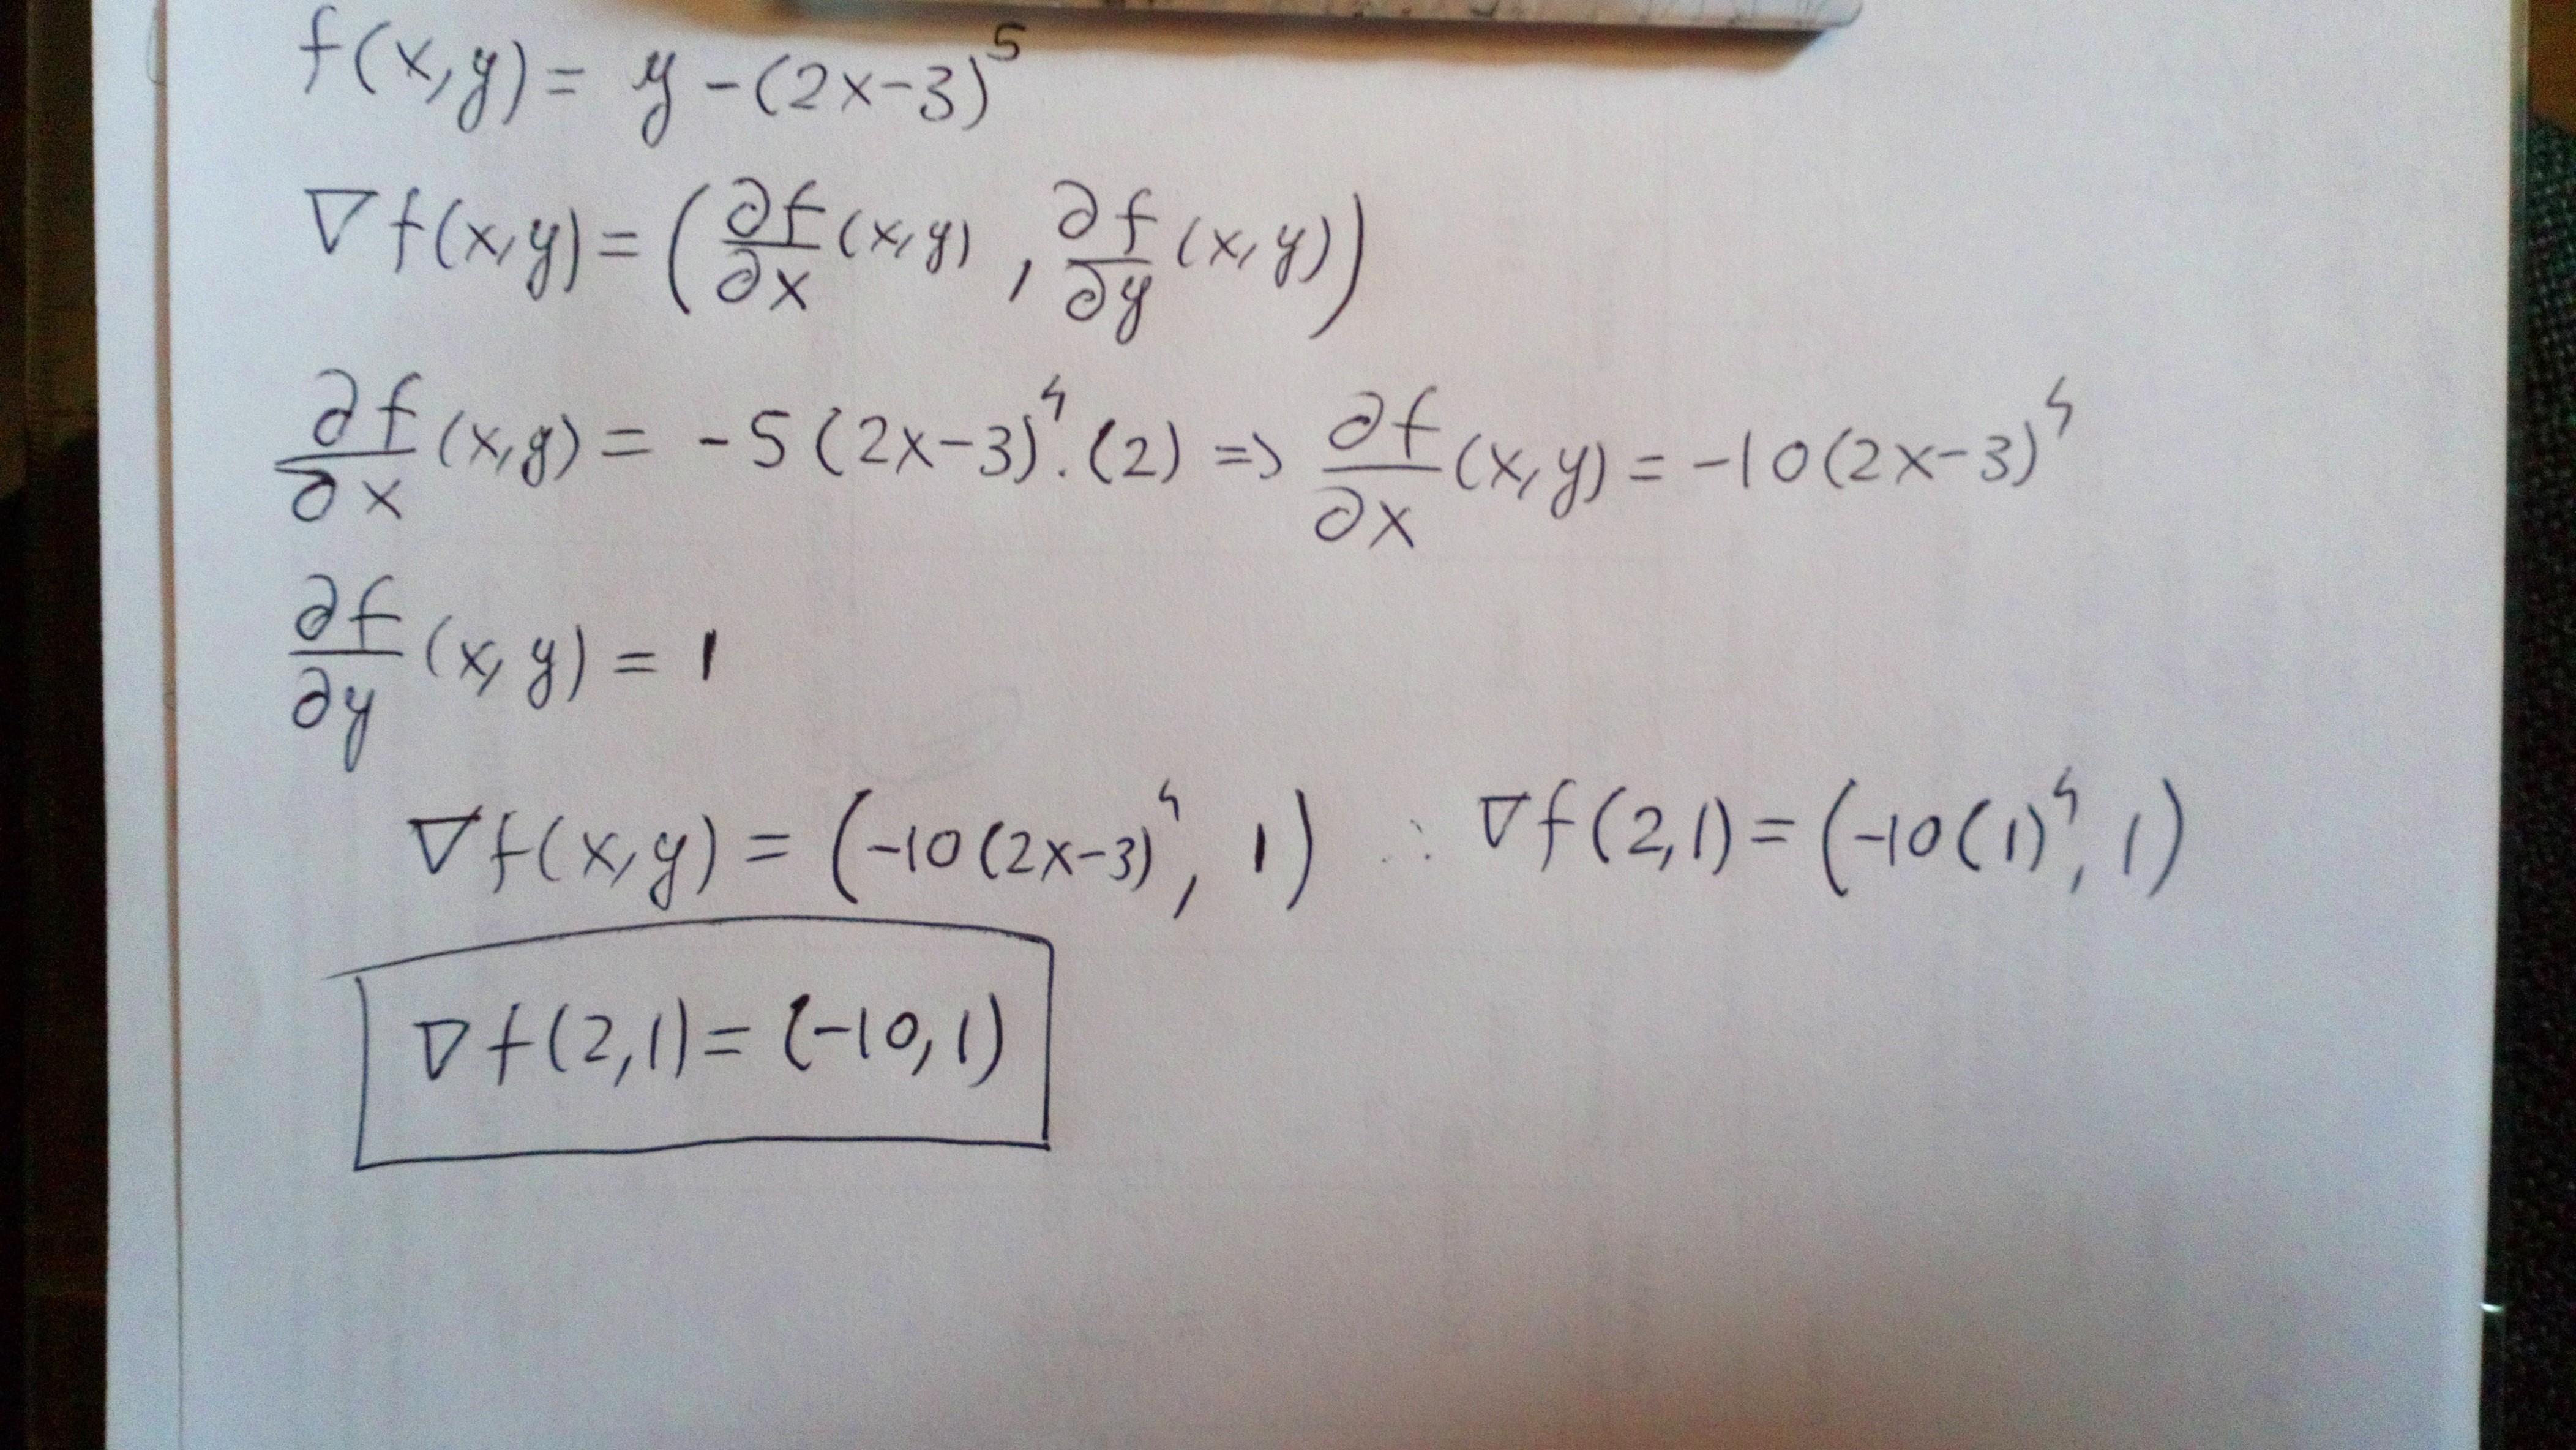 f(x,y) = y - (2x-3)^5
∇f(x,y) = (∂f/∂x (x,y) , ∂f/∂y (x,y))
∂f/∂x (x,y) = -5(2x-3)^4 . (2) => ∂f/∂x (x,y) = -10(2x-3)^4
∂f/∂y (x,y) = 1
∇f(x,y) = (-10(2x-3)^4, 1) ∴ ∇f(2,1) = (-10(1)^4, 1)
∇f(2,1) = (-10,1)